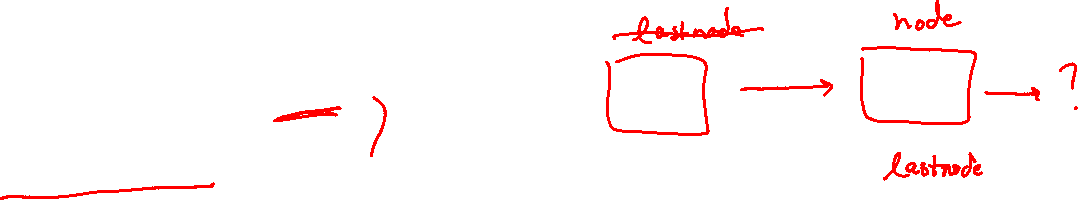 lastnode
node
?
lastnode